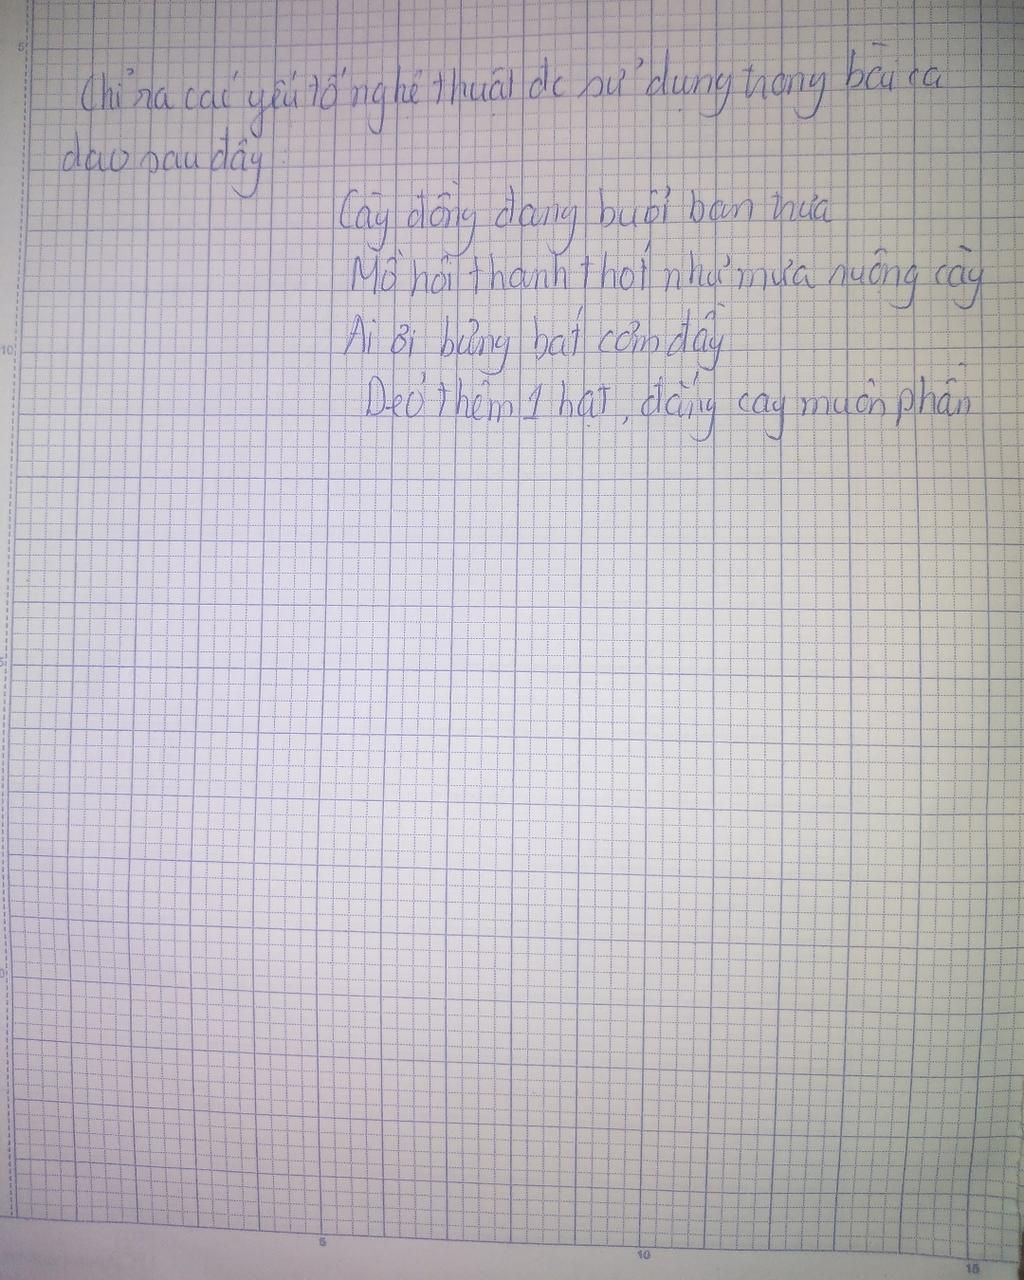 5
Chỉ ra các yếu tố nghệ thuật đc sử dụng trong bài ca
dao sau đây
Cày đồng đang buổi ban trưa
Mồ hôi thánh thót như mưa ruộng cày
Ai ơi bưng bát cơm đầy
10
Dẻo thơm 1 hạt, đắng cay muôn phần
5
10
15